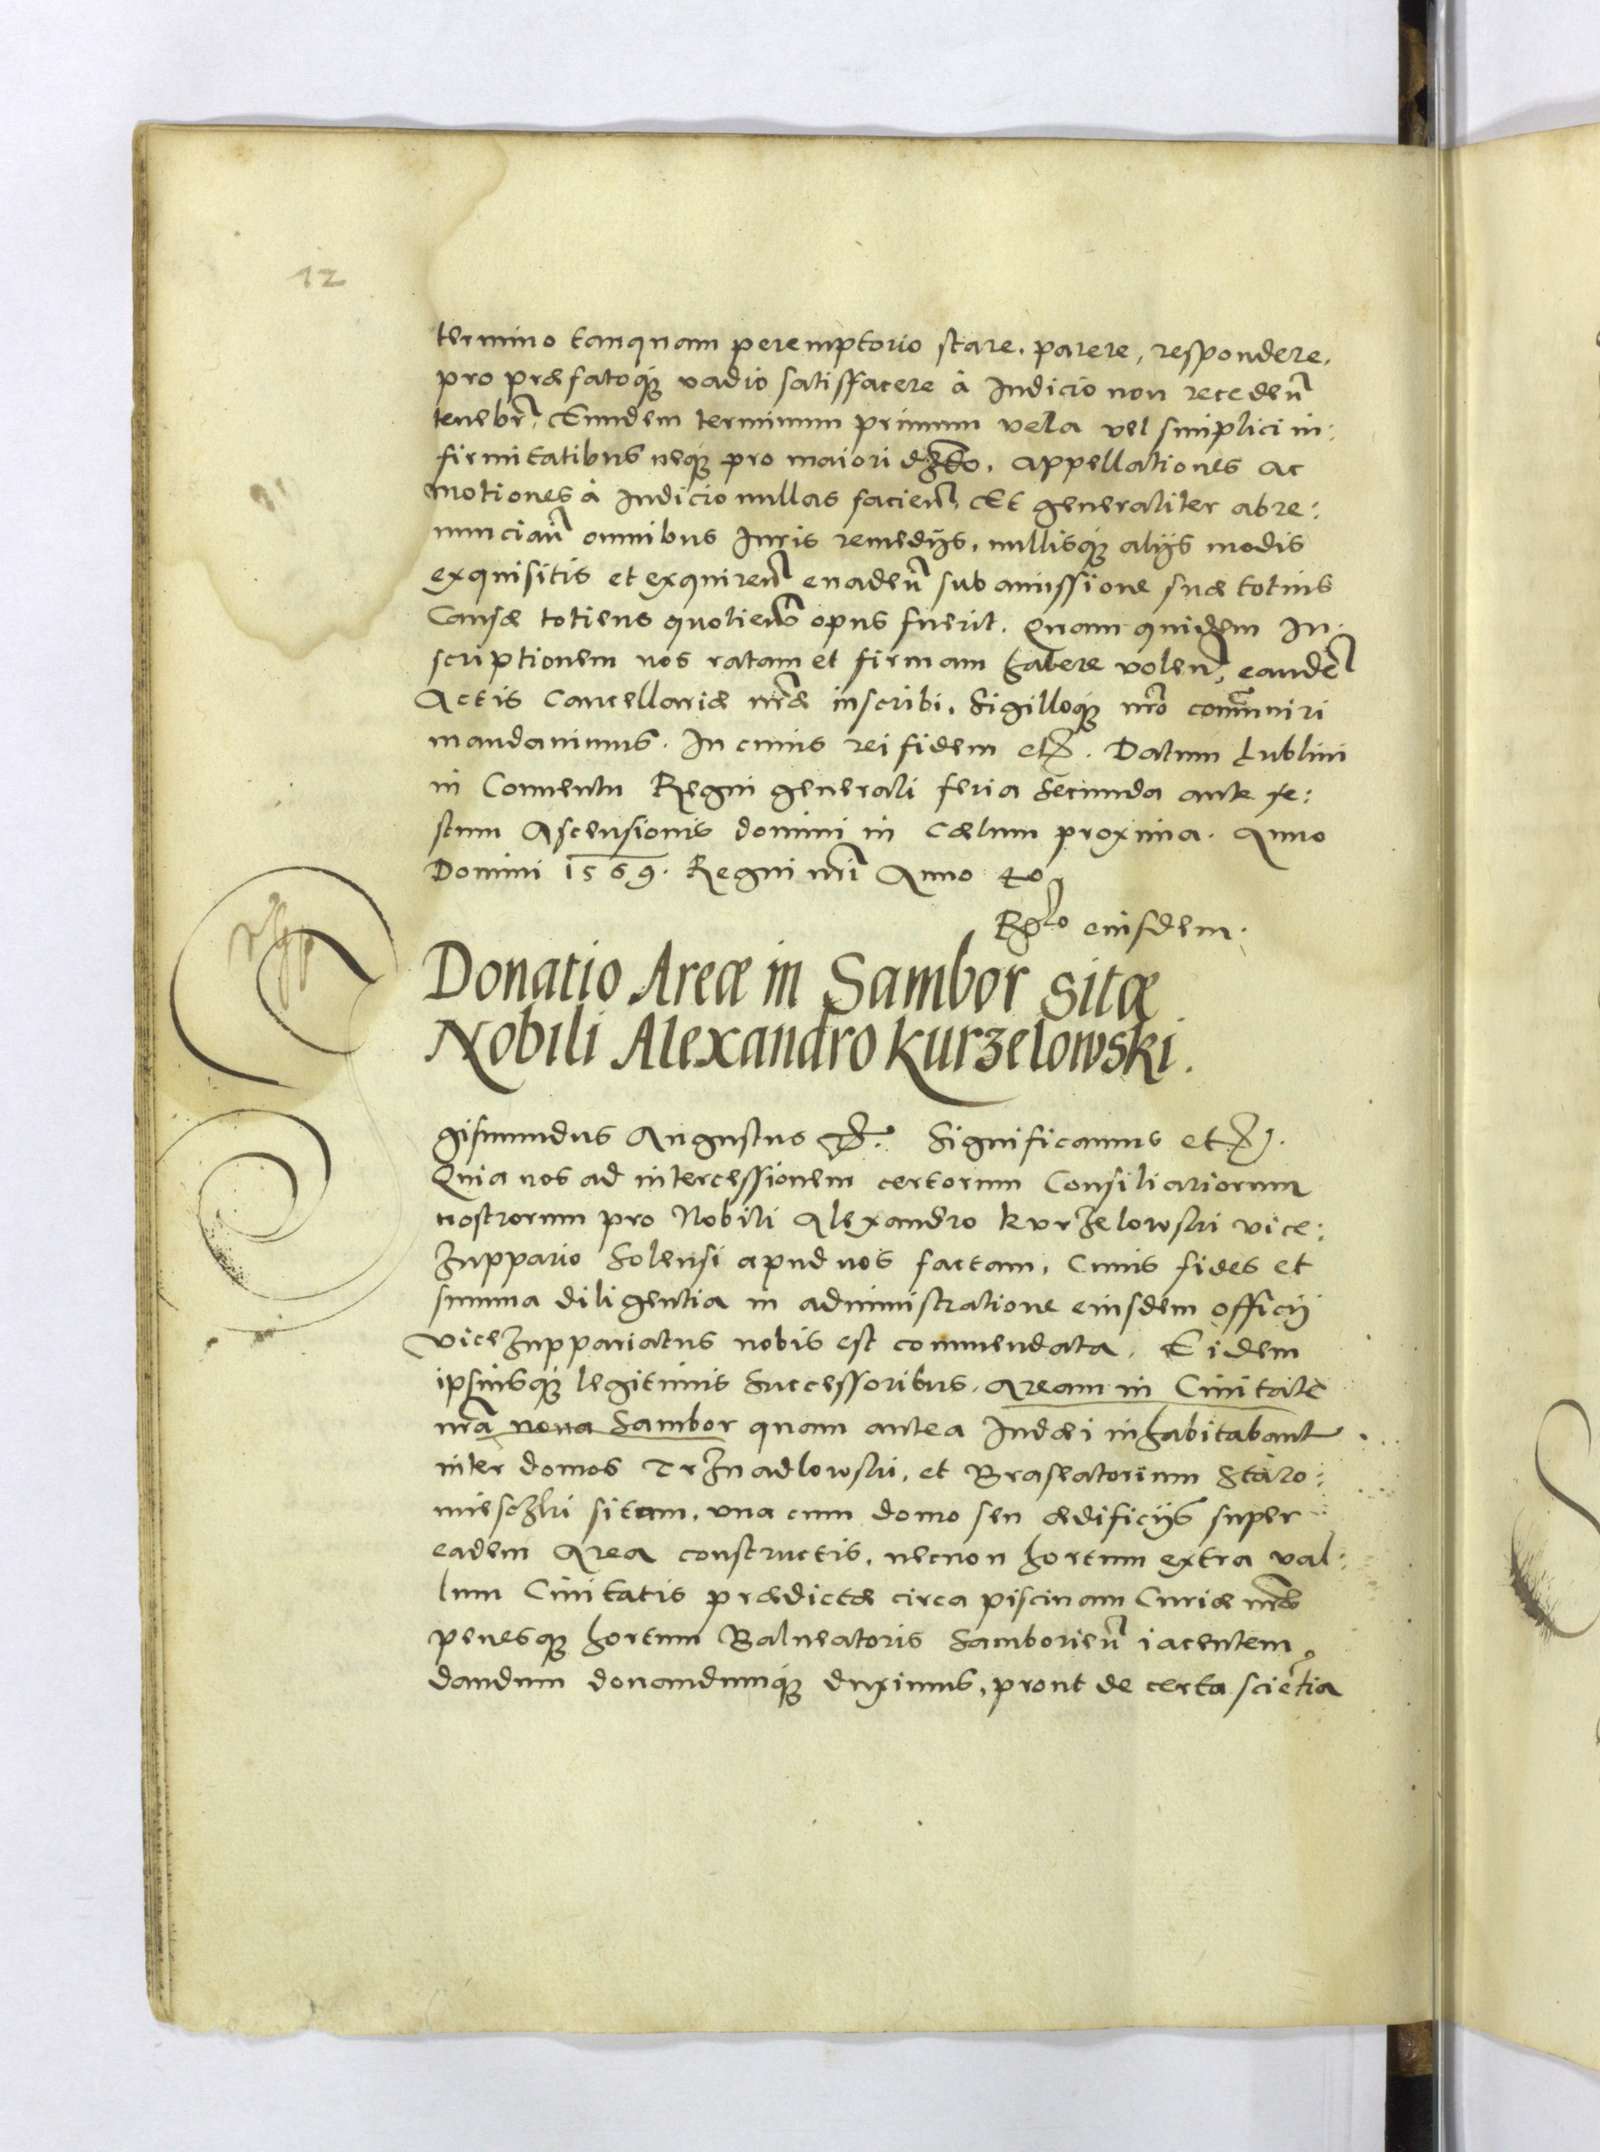 12
termino tanquam peremptorio stare, parere, respondere,
pro præfatoqȝ vadio satisfacere à Iudicio non recedeñ
tenebr̃. Eundem terminum primum vera vel simplici in:
firmitatibus neqȝ pro maiori . Appellationes ac
motiones à Iudicio nullas facieñ, Et generaliter abre:
nunciañ omnibus Iuris remedijs, nullisqȝ alijs modis
exquisitis et exquireñ euadeñ sub amissione suæ totius
Causæ totiens quotiens opus fuerit. Quam quidem In:
scriptionem nos ratam et firmam habere voleñ, eandẽ
Actis Cancellariæ nr̃æ inscribi, Sigilloqȝ nr̃o com̃uniri
mandauimus. In cuius rei fidem etc. Datum Lublini
in Conuentu Regni generali feria Secunda ante fe:
stum Ascensionis domini in Cælum proxima. Anno
Domini 1569. Regni nr̃i Anno 40
Rȩlo eiusdem.
Donatio Areæ in Sambor sitæ
Nobili Alexandro Kurzelowski.
gismundus Augustus etc. Significamus etc.
Quia nos ad intercessionem certorum Consiliariorum
nostrorum pro Nobili Alexandro Kurzelowski vice:
zuppario Solensi apud nos factam, Cuius fides et
summa diligentia in administratione eiusdem officij
vicezuppariatus nobis est commendata, Eidem
ipsiusqȝ legitimis Successoribus, Aream in Ciuitate
nr̃a noua Sambor quam antea Iudæi inhabitabant
inter domos Trznadlowski, et Braseatorium Staro:
miesczki sitam, vna cum domo seu ædificijs super
eadem Area constructis, necnon hortum extra val:
lum Ciuitatis prædictæ circa piscinam Curiæ nr̃æ
penesqȝ hortum Balneatoris Samborieñ iacentem
dandum donandumqȝ duximus, prout de certa sciẽtia